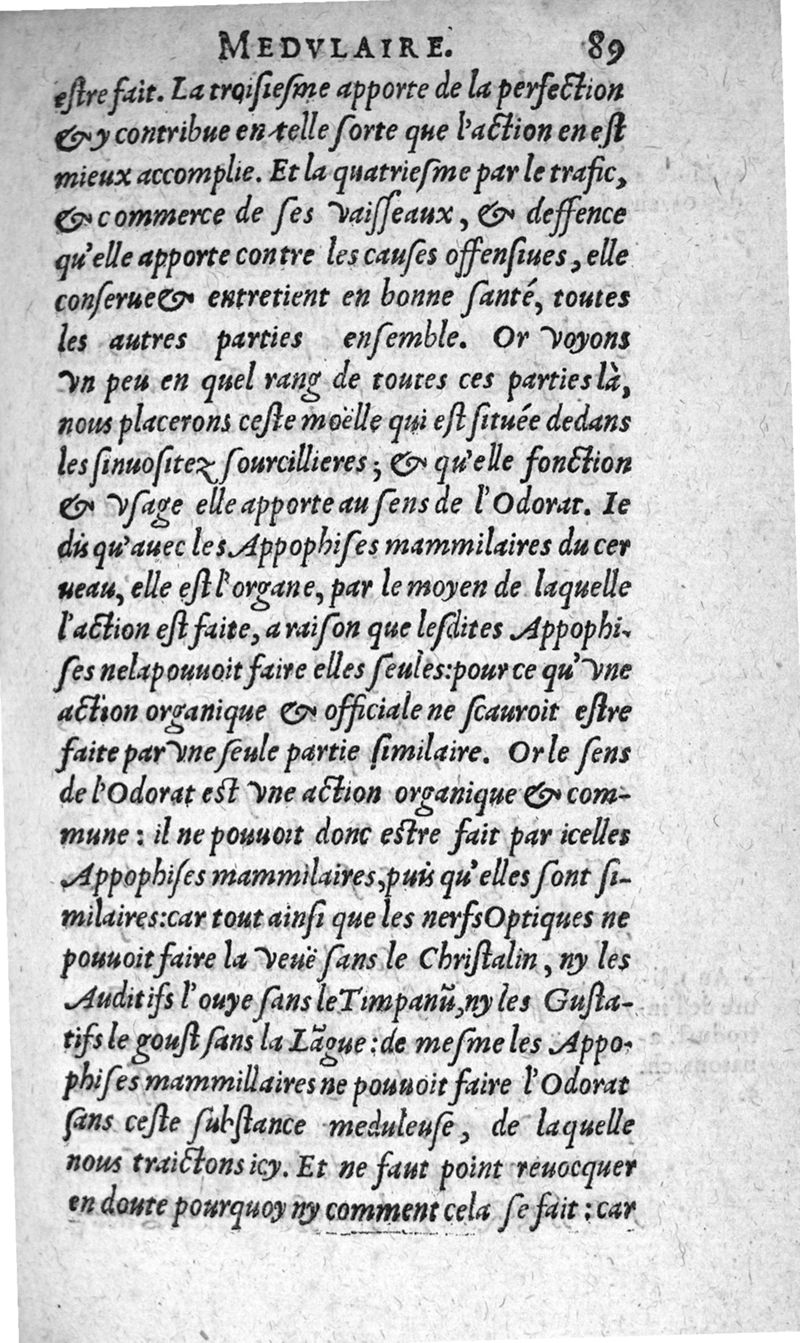 MEDVLAIRE. 89
eſtre fait. La troiſieſme apporte de la perfection
& y contribue en telle ſorte que l'action en eſt
mieux accomplie. Et la quatrieſme par le trafic,
& commerce de ſes vaiſſeaux, & deffence
qu'elle apporte contre les cauſes offenſiues, elle
conſerue & entretient en bonne ſanté, toutes
les autres parties enſemble. Or voyons
vn peu en quel rang de toutes ces parties là,
nous placerons ceſte moëlle qui eſt ſituée dedans
les ſinuoſitez ſourcillieres; & qu'elle fonction
& vſage elle apporte au ſens de l'Odorat. Ie
dis qu'auec les Appophiſes mammilaires du cer
ueau, elle eſt l'organe, par le moyen de laquelle
l'action eſt faite, a raiſon que leſdites Appophi-
ſes ne la pouuoit faire elles ſeules: pour ce qu'vne
action organique & officiale ne ſcauroit eſtre
faite par vne ſeule partie ſimilaire. Or le ſens
de l'Odorat eſt vne action organique & com-
mune: il ne pouuoit donc eſtre fait par icelles
Appophiſes mammilaires, puis qu'elles ſont ſi-
milaires: car tout ainſi que les nerfs Optiques ne
pouuoit faire la veuë ſans le Chriſtalin, ny les
Auditifs l'ouye ſans le Timpanũ, ny les Guſta-
tifs le gouſt ſans la Lãgue: de meſme les Appo-
phiſes mammillaires ne pouuoit faire l'Odorat
ſans ceſte ſubſtance meduleuſe, de laquelle
nous traictons icy. Et ne faut point reuocquer
en doute pourquoy ny comment cela ſe fait: car